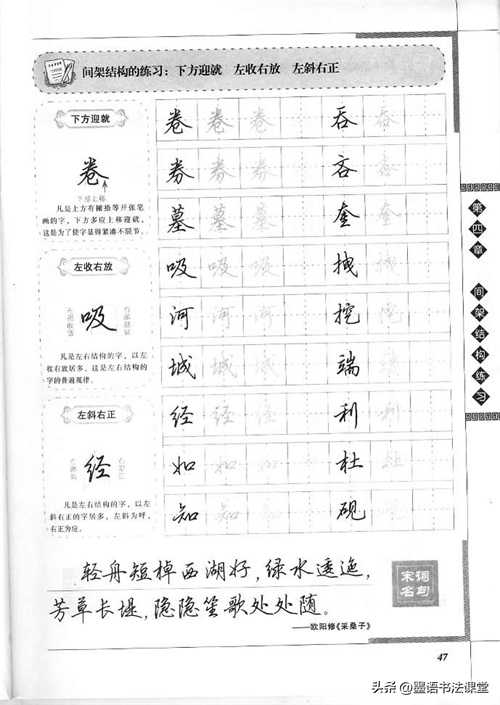 间架结构的练习：下方迎就 左收右放 左斜右正
下方迎就
卷
下部上移
凡是上方有撇捺等开张笔
画的字，下方多应上移迎就，
这是为了使字显得紧凑不脱节。
卷 卷 卷 吞 吞
券 券 券 吝 吝
墓 墓 墓 奎 奎
左收右放
吸
凡是左右结构的字，以左
收右放居多，这是左右结构的
字的普遍规律。
吸 吸 吸 拽 拽
河 河 河 挖 挖
城 城 城 端 端
左斜右正
经
凡是左右结构的字，以左
斜右正的字居多，左斜为呼，
右正为应。
经 经 经 利 利
如 如 如 杜 杜
知 知 知 砚 砚
轻舟短棹西湖好，绿水逶迤，
芳草长堤，隐隐笙歌处处随。
——欧阳修《采桑子》
宋词
名句
第四章 间架结构练习
47
头条 @墨语书法课堂